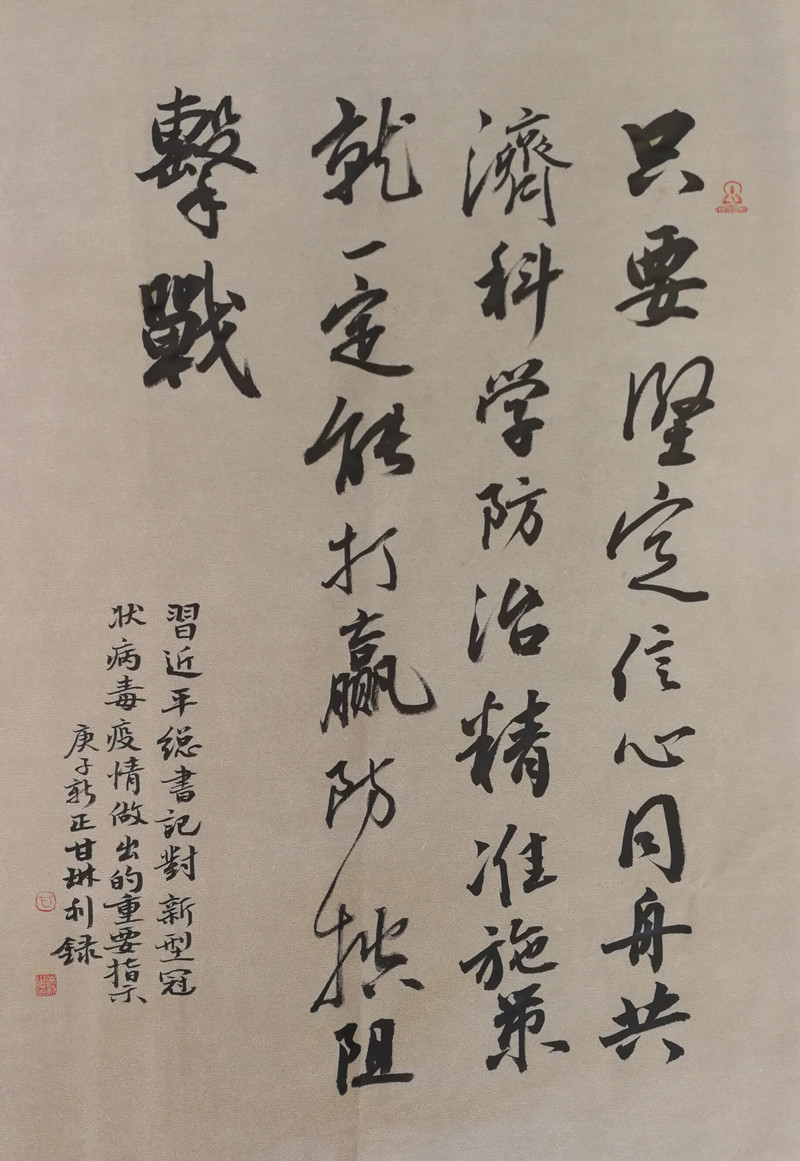 只要堅定信心同舟共
濟科学防治精准施策
就一定能打赢防控阻
擊戰
習近平総書記對新型冠
状病毒疫情做出的重要指示
庚子新正甘琳利録